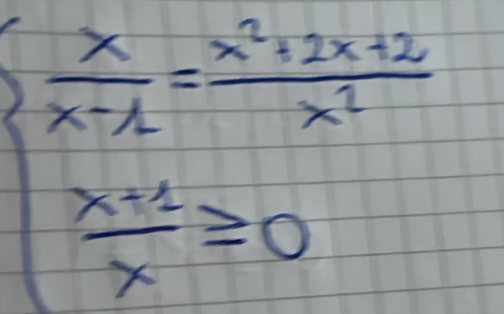 x/(x-1) = (x²+2x+2)/x²
(x+1)/x ≥ 0